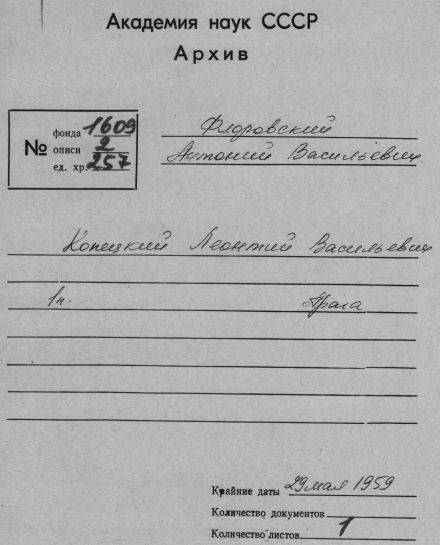 Академия наук СССР
Архив
№ фонда 1609
описи 2
ед. хр. 257
Флоровский
Антоний Васильевич
Копецкий Леонтий Васильевич
1п. Прага
Крайние даты 29 мая 1959
Количество документов
Количество листов 1